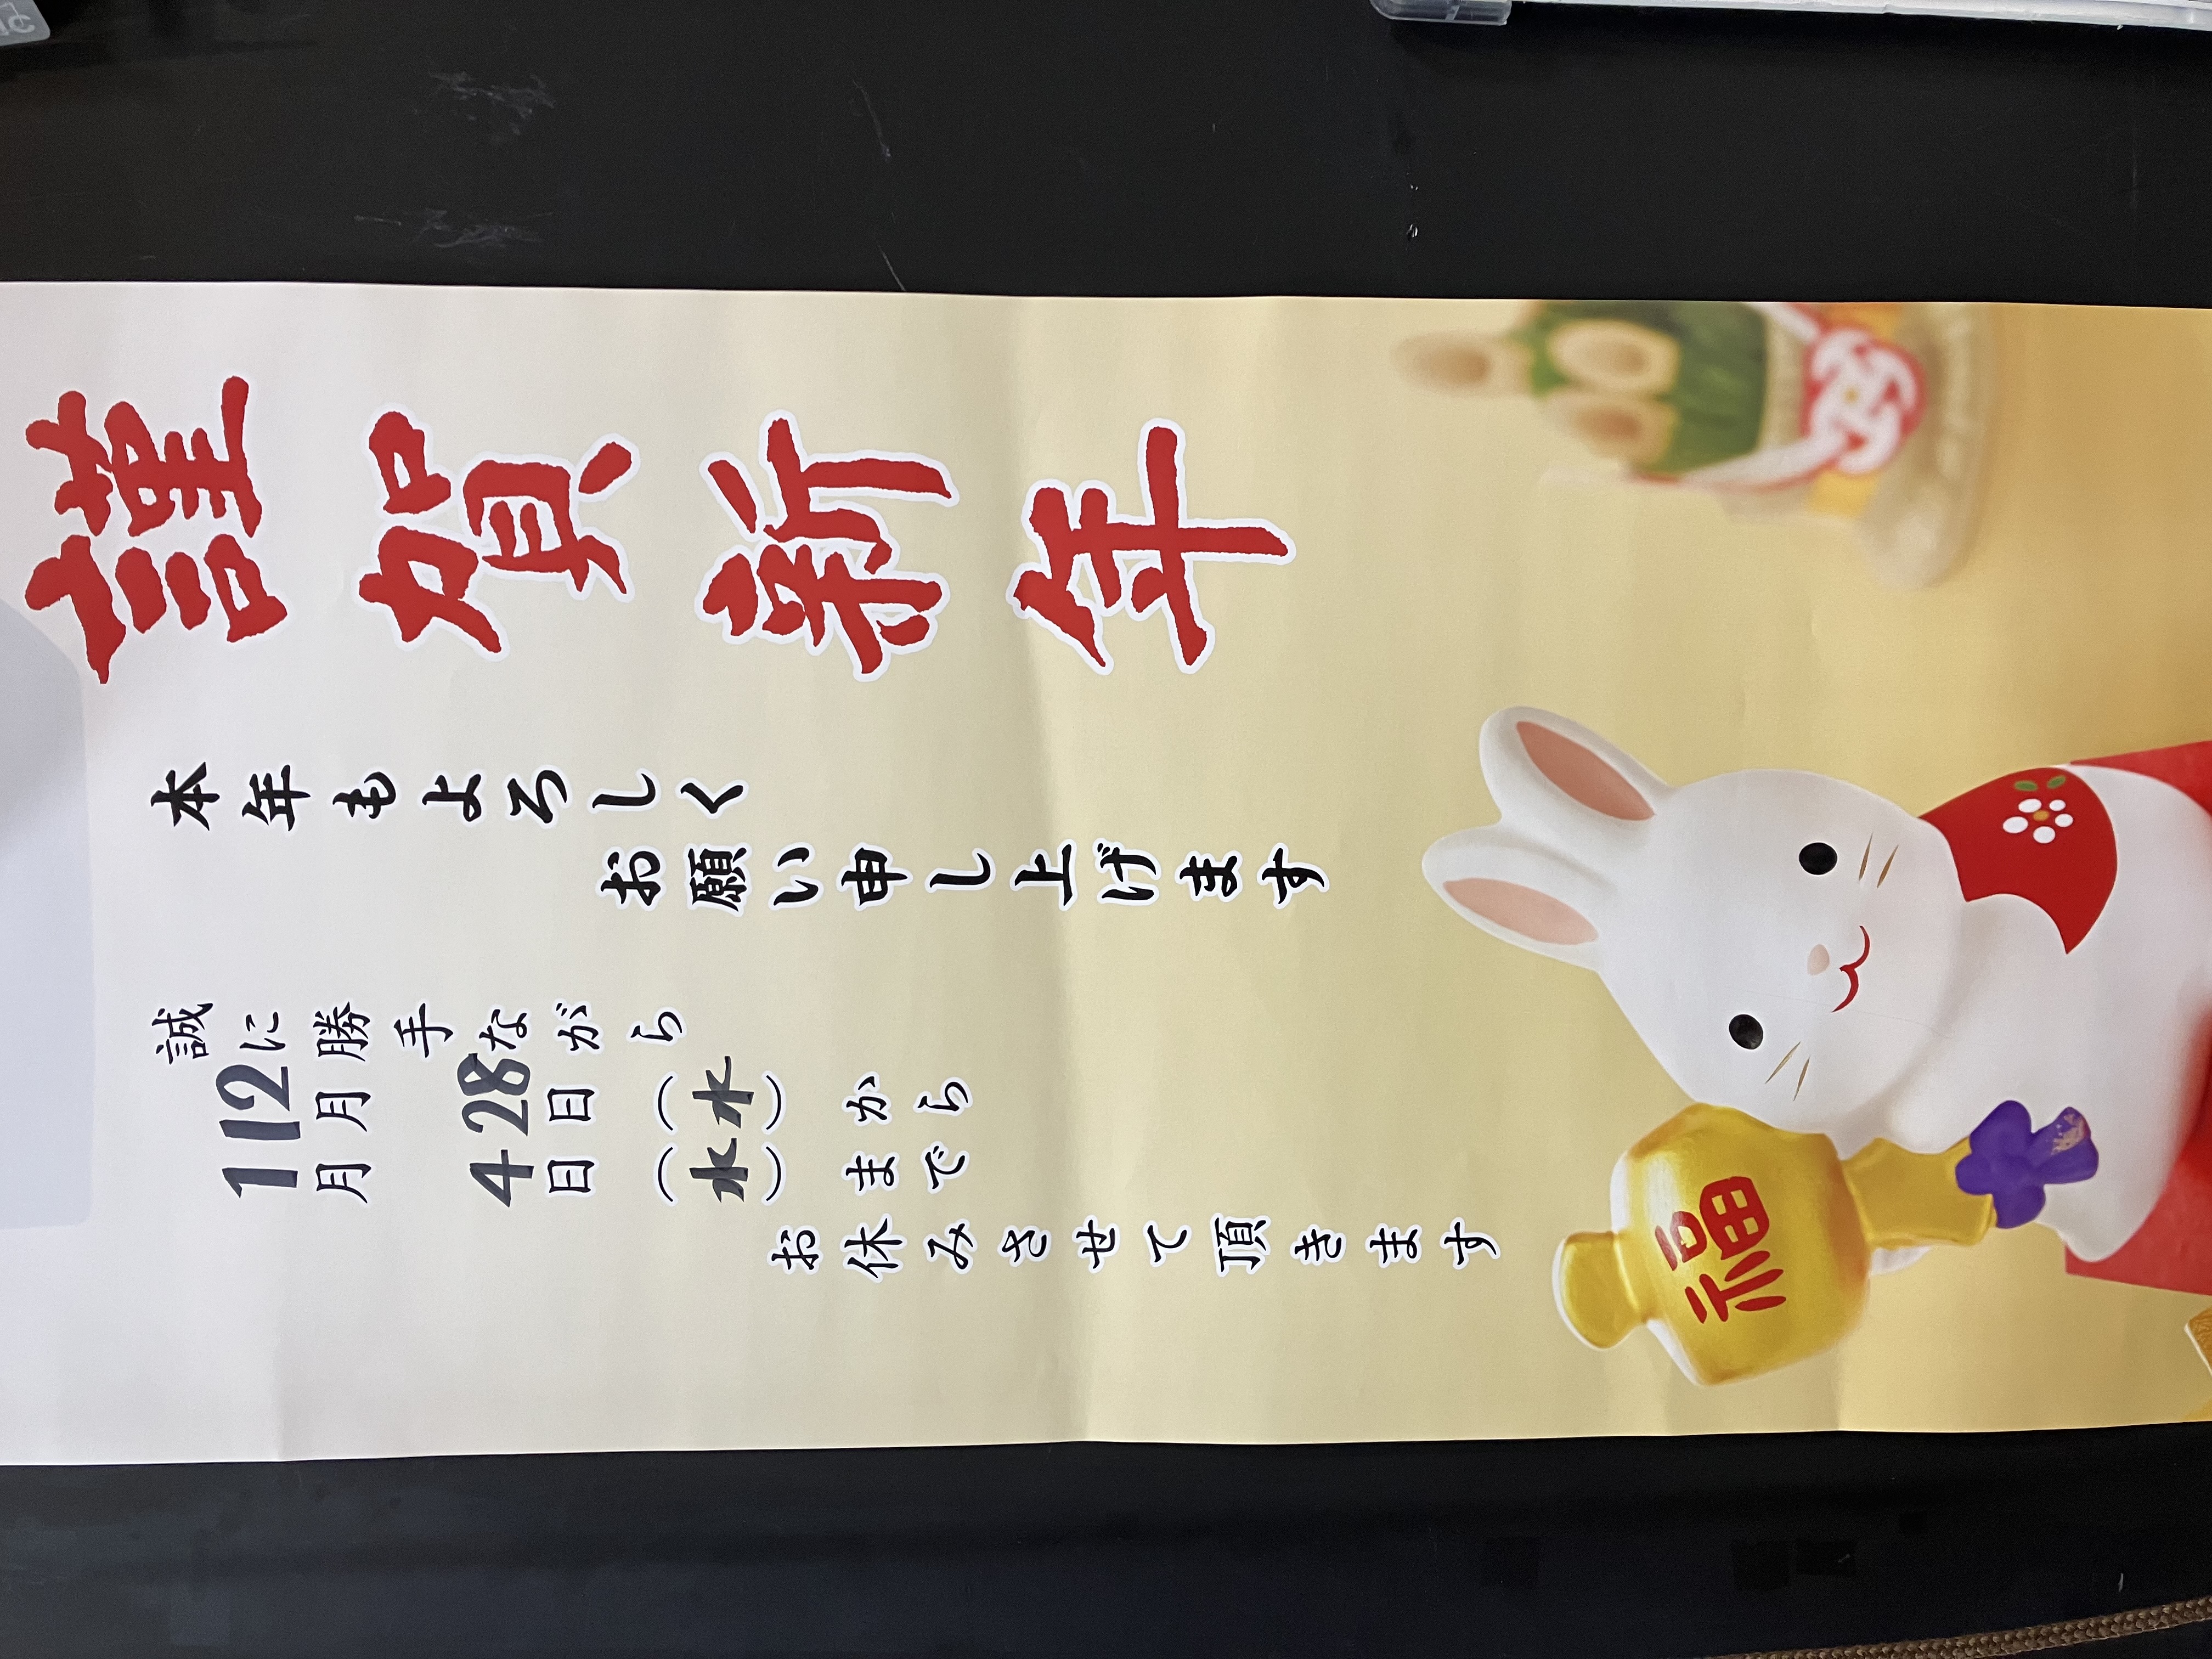 謹賀新年
本年もよろしく
お願い申し上げます
誠に勝手ながら
12月28日(水)から
1月4日(水)まで
お休みさせて頂きます
福